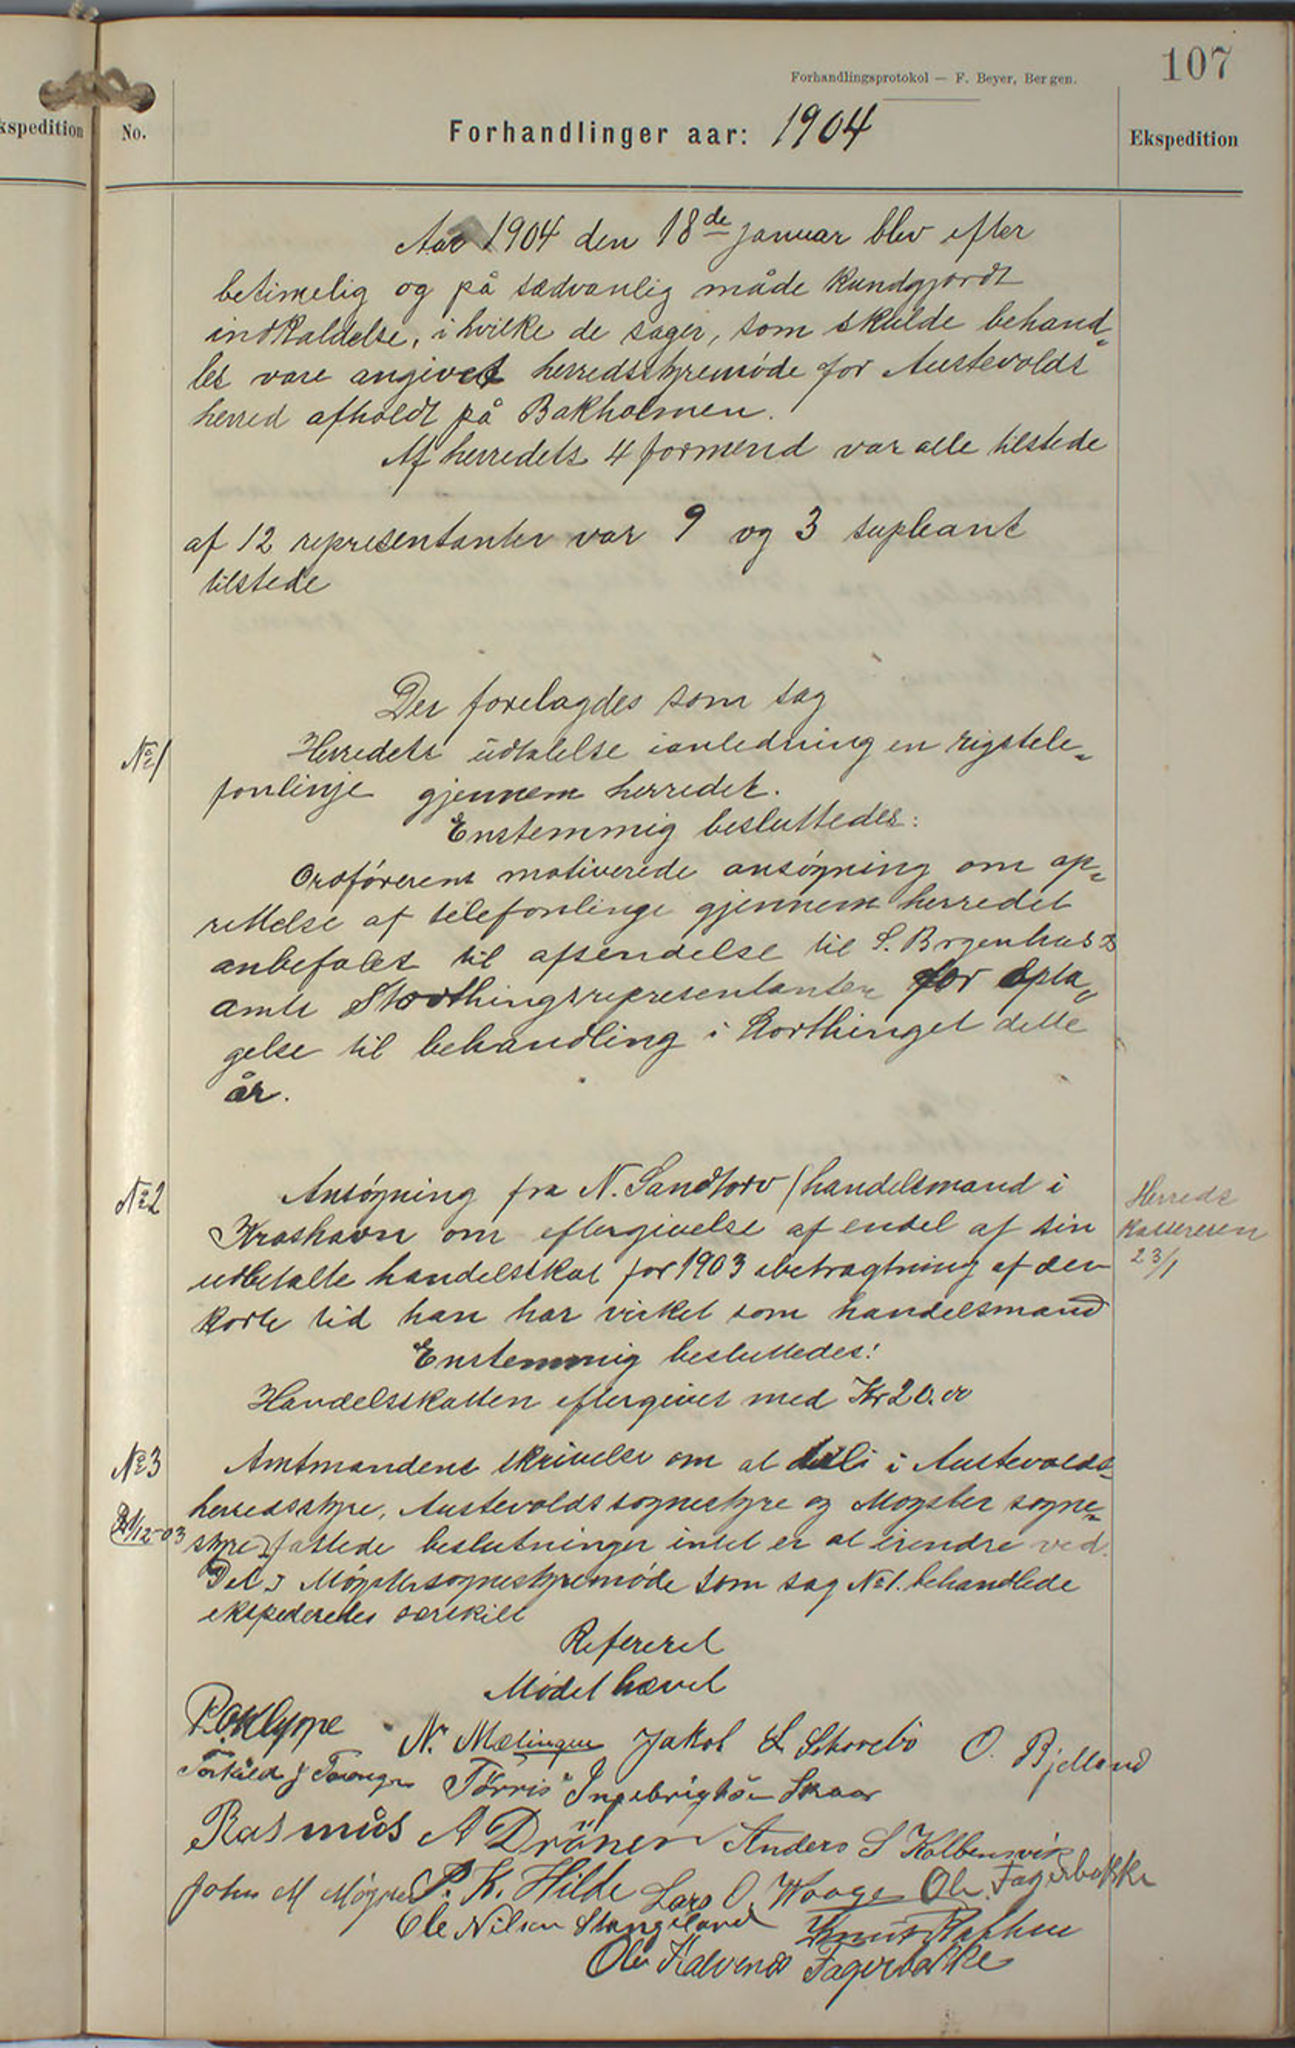 107
Forhandlingsprotokol — F. Beyer, Bergen.
kspedition
No.
Forhandlinger aar: 1904
Ekspedition
Aar 1904 den 18de januar blev efter
betimelig og på sædvanlig måde kundgjordt
indkaldelse, i hvilke de sager, som skulde behand-
les vare angivet herredsstyremøde for Austevolds
herred afholdt på Bakholmen.
Af herredets 4 formend var alle tilstede
af 12 representanter var 9 og 3 supleant
tilstede
Der forelagdes som sag
No 1
Herredets udtalelse ianledning en rigstele-
fonlinje gjennem herredet.
Enstemmig besluttedes:
Ordførerens motiverede ansøgning om op-
rettelse af telefonlinje gjennem herredet
anbefales til afsendelse til S. Brgenhus
amts Storthingsrepresentanter for opta-
gelse til behandling i Storthinget dette
år.
No 2
Ansøgning fra N. Sandtorv handelsmand i
om eftergivelse af endel af sin
udbetalte handelsskat for 1903 ibetragtning af den
korte tid han har virket som handelsmand
Herreds
kassereren
23/1
Enstemmig besluttedes:
Handelsskatten eftergives med Kr 20.00
No 3
Amtmandens skrivelse om at i Austevolds
herredsstyre, Austevolds sognestyre og Møgster sogne-
21/12-03
styre fattede beslutninger intet er at erindre ved.
Det i Møgster sognestyremøde som sag No 1. behandlede
ekspederedes særskilt
Refereret
Mødet hævet
P. O. Klyppe N. Mælingen Jakob L Storebø O. Bjelland
Torkild J Torangr Tørris Ingebrigtsen Skaar
Rasmus A Drønen Anders S Kolbensvik
John M Møgster P. K. Hilde Lars O. Waage Ole Fagerbakke
Ole Nilsen Stangeland Knut
Ole Kalvenes Fagerbakke